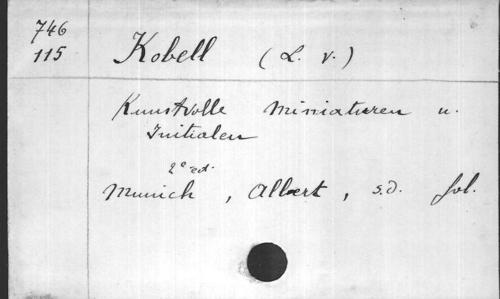 746
115 Kobell (L. v.)
Kunstvolle Miniaturen u.
Initialen
2e ed.
Munich, Albert, s.d. fol.